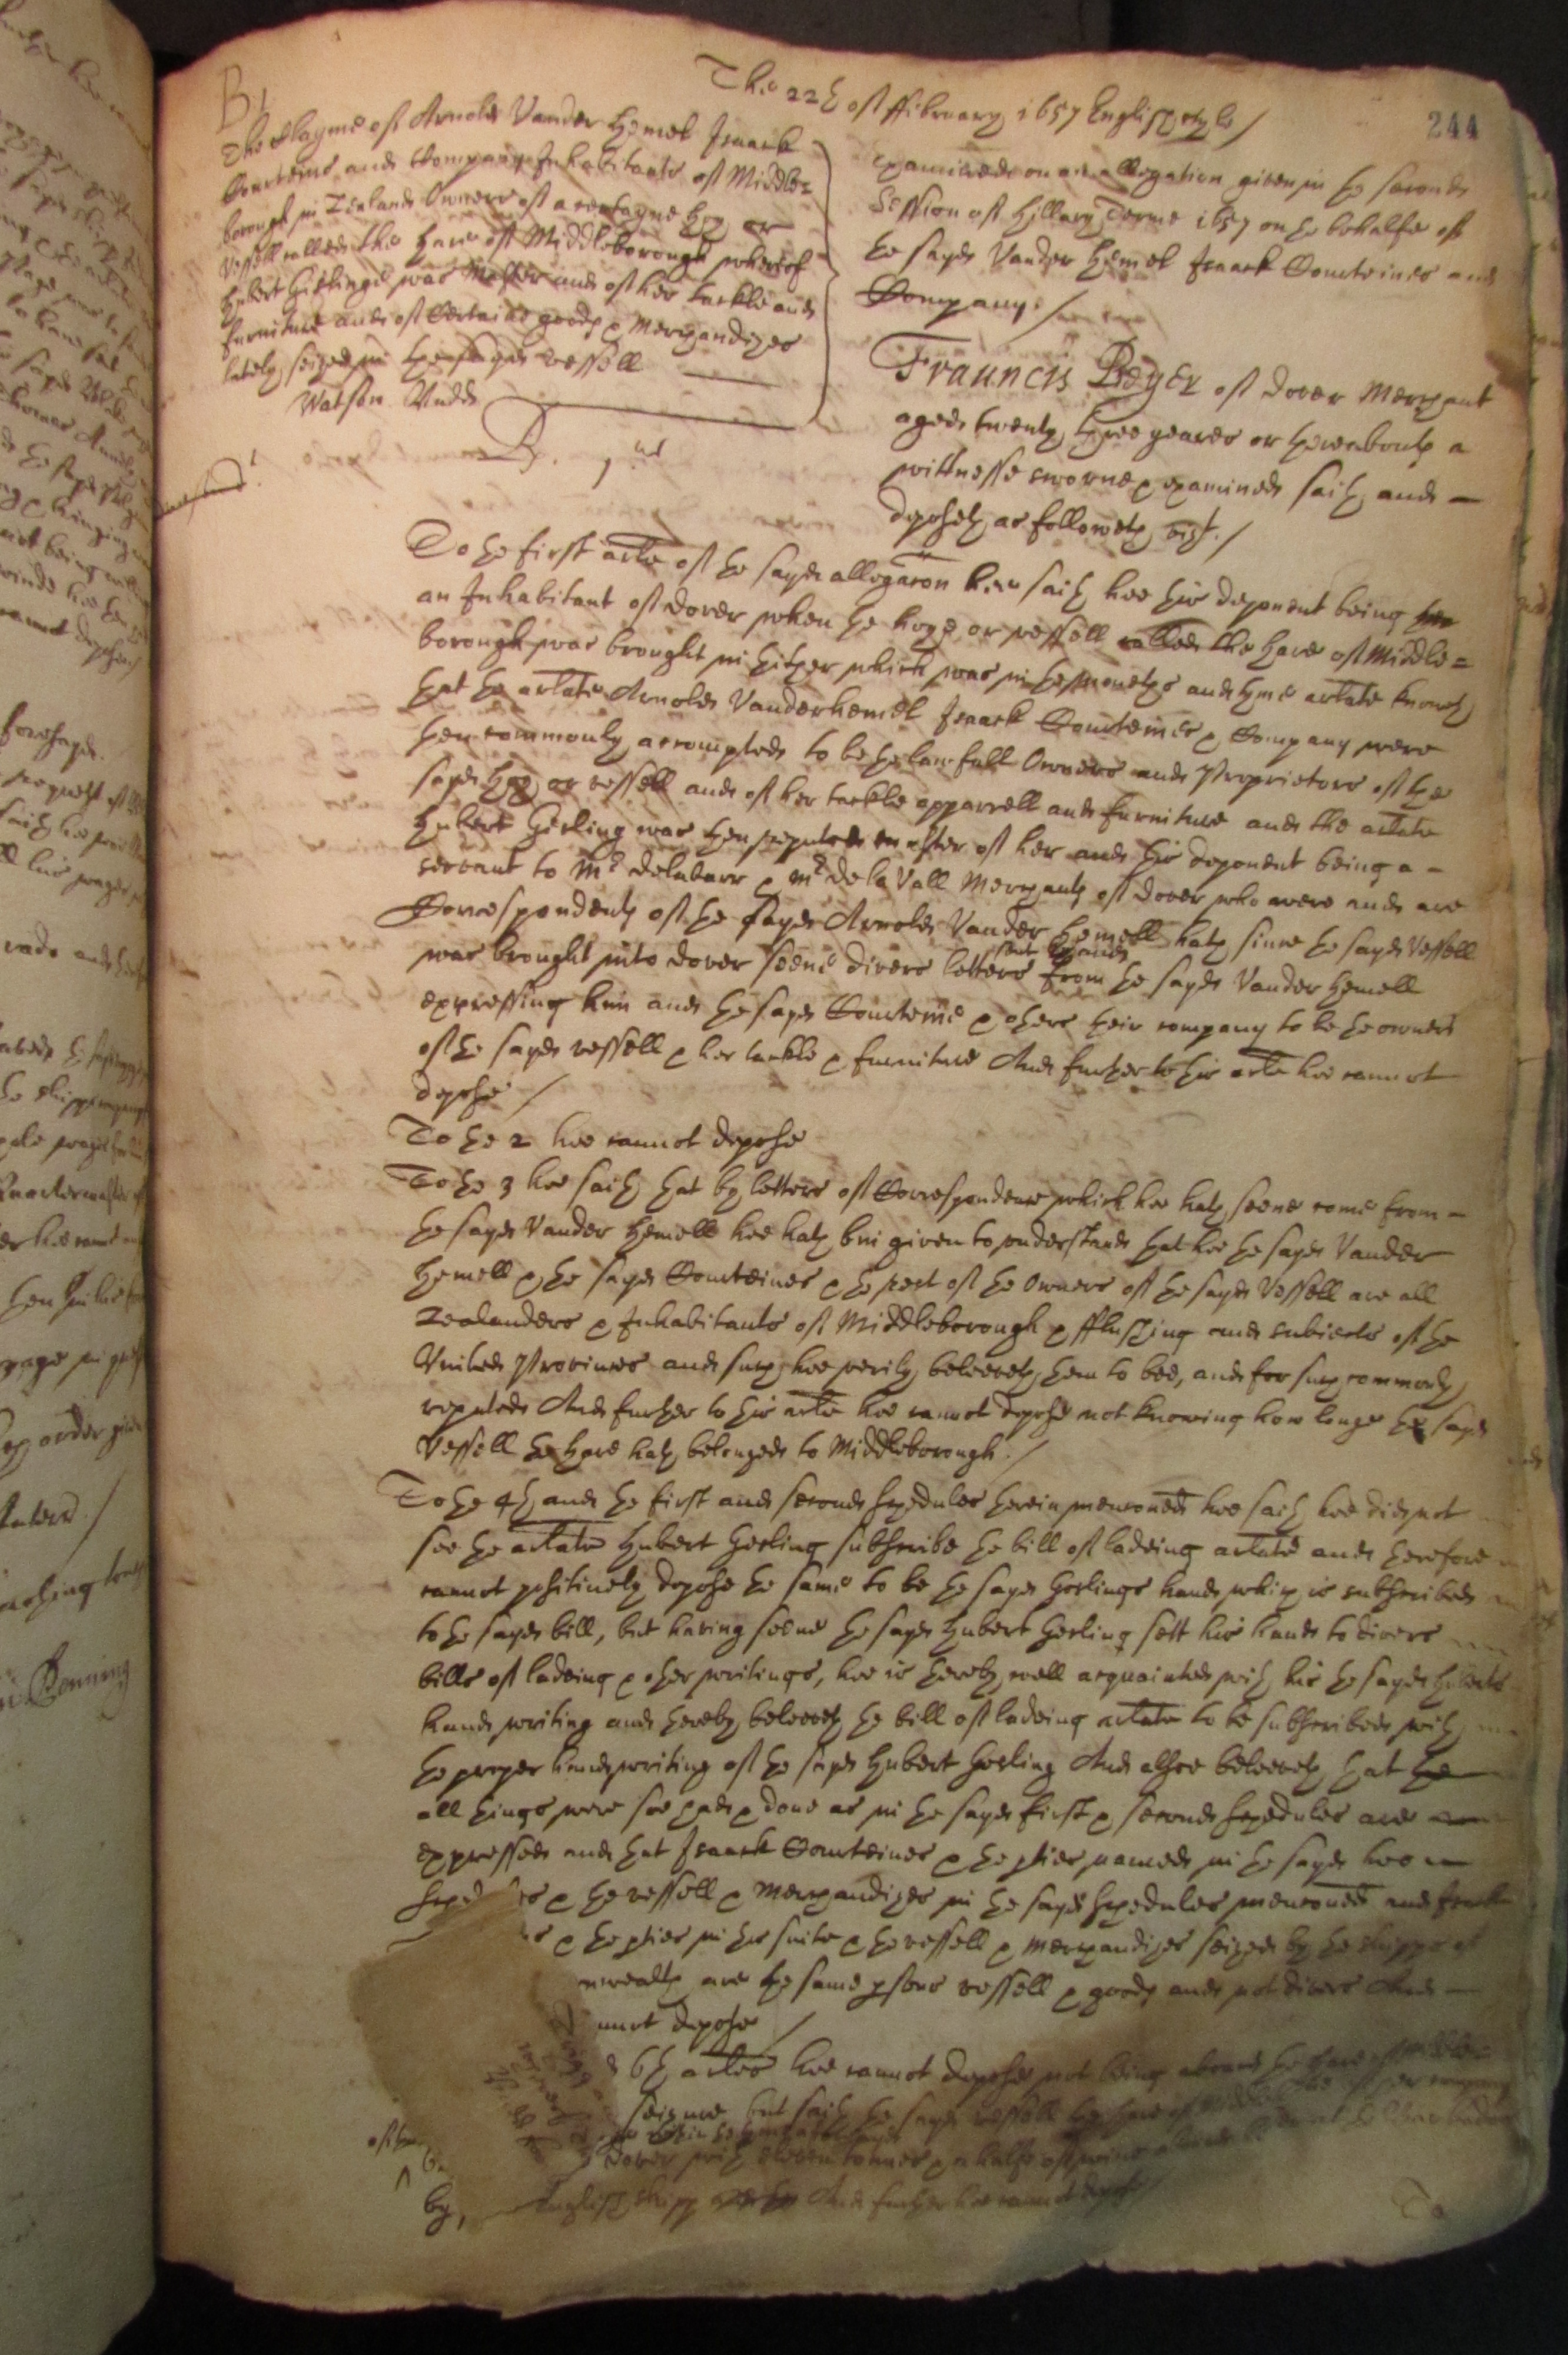 The 22th of ffebruary 1657 English style /
244
B. 1
The Clayme of Arnolds Vander Hemel Isaack
Courteine and Company Inhabitants of Middle=
borough in Zealand Owners of a certayne hoy or
Vessell called the Hare of Middleborough whereof
Hubert Gierlinge was Master and of her tackle and
furniture and of Certaine goods & Merchandizes
lately seized in the sayd vessell
Watson Rudd
D. 1us
Examined on an allegation given in the second
Session of Hillary Terme 1657 on the behalfe of
the sayd Vander Hemel Isaack Courteines and
Company. /
Frauncis Beyer of dover Merchant
aged twenty three yeares or thereabouts a
wittnesse sworne & examined saith and
deposeth as followeth vizt. /
To the first arle of the sayd allegacon hee saith hee this deponent being
an Inhabitant of dover when the hoye or vessell called the Hare of Middle=
borough was brought in thither which was in the moneths and tyme arlate knoweth
that the arlate Arnolds Vanderhemel Isaack Courteines & Company were
then commonly accompted to be the lawfull Owners and Proprietors of the
sayd hoy or vessell and of her tackle apparrell and furniture and the arlate
Hubert Gerling was then reputed master of her and this deponent being a
servant to Mr delabarr & Mr de la Vall Merchants of dover who were and are
Correspondents of the sayd Arnolds Vander Hemell hath since the sayd Vessell
was brought into dover seene divers letters sent from the sayd Vander Hemell
expressing him and the sayd Courteine & others their company to be the owners
of the sayd vessell & her tackle & furniture And further to this arle hee cannot
depose /
To the 2 hee cannot depose
To the 3 hee saith that by letters of Correspondence which hee hath seene come from
the sayd Vander Hemell hee hath bin given to understand that hee the sayd Vander
Hemell & the sayd Courteines & the rest of the Owners of the sayd Vessell are all
Zealanders & Inhabitants of Middleborough & fflushing and subiects of the
United Provinces and such hee verily beleeveth them to bee, and for such commonly
reputed And further to this arle hee cannot depose not knowing how longe the sayd
Vessell the Hare hath belonged to Middleborough. /
To the 4th and the first and second schedules therein menconed hee saith hee did not
see the arlate Hubert Gerling subscribe the bill of ladeing arlate and therefore
cannot positively depose the same to be the sayd Gerlings hand which is subscribed
to the sayd bill, but having seene the sayd Hubert Gerling sett his hand to divers
bills of ladeing & other writings, hee is thereby well acquainted with his the sayd Huberts
hand writing and thereby beleeveth the bill of ladeing arlate to be subscribed with
the proper hand writing of the sayd Hubert Gerling And alsoe beleeveth that
all things were soe had & done as in the sayd first & second schedules are
expressed and that Isaack Courteines & the pties named in the sayd
& the vessell & Merchandizes in the sayd schedules menconed and
& the pties in this suite & the vessell & merchandizes seized by the shipps of
are the same psons vessell & goods and not divers And
depose /
6th arles hee cannot depose not being aboard the Hare of Middle=
seizure but saith the sayd vessell the Hare of
dover with eleven tonnes & a halfe of
by,
English shipp And further hee cannot depose
To